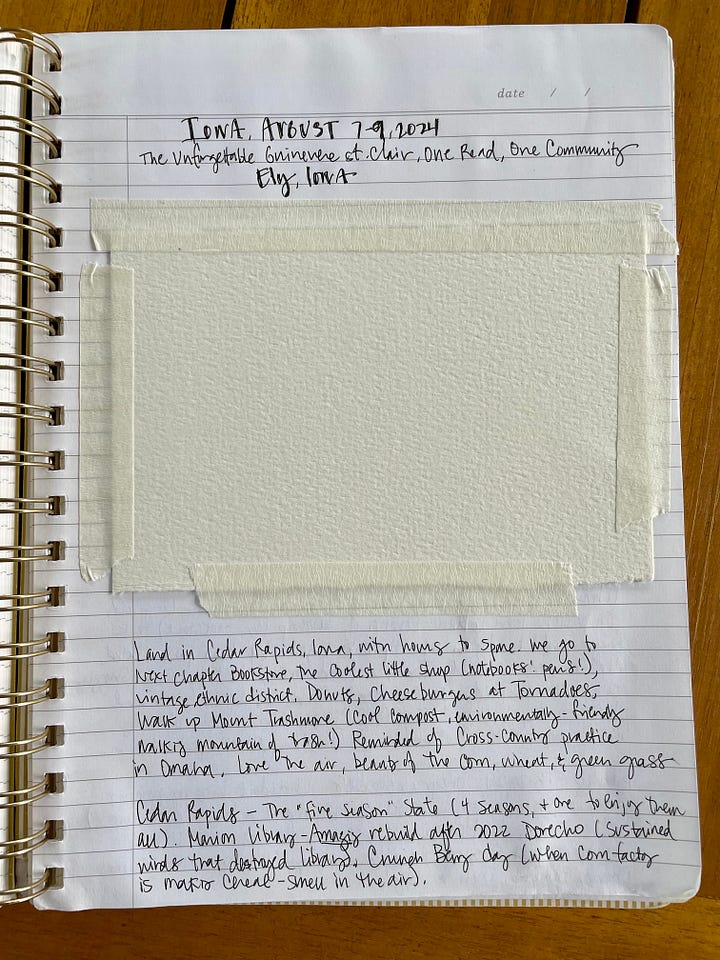 date / /
Iowa, August 7-9, 2024
The Unforgettable Guinevere St. Clair, One Read, One Community
Ely, Iowa
Land in Cedar Rapids, Iowa, with hours to spare. We go to
Next Chapter Bookstore, the coolest little shop (notebooks! pens!),
vintage, ethnic district, Donuts, Cheeseburgers at Tornadoes,
Walk up Mount Trashmore (Cool compost, environmentally-friendly
walking mountain of trash!) Reminded of Cross-Country practice
in Omaha. Love the air, beauty of the corn, wheat, & green grass
Cedar Rapids - The "five season" State (4 seasons, + one to enjoy them
all). Marion Library - Amazing rebuild after 2022 Derecho (sustained
winds that destroyed library). Crunch Berry day (when corn factory
is making cereal - smell in the air).